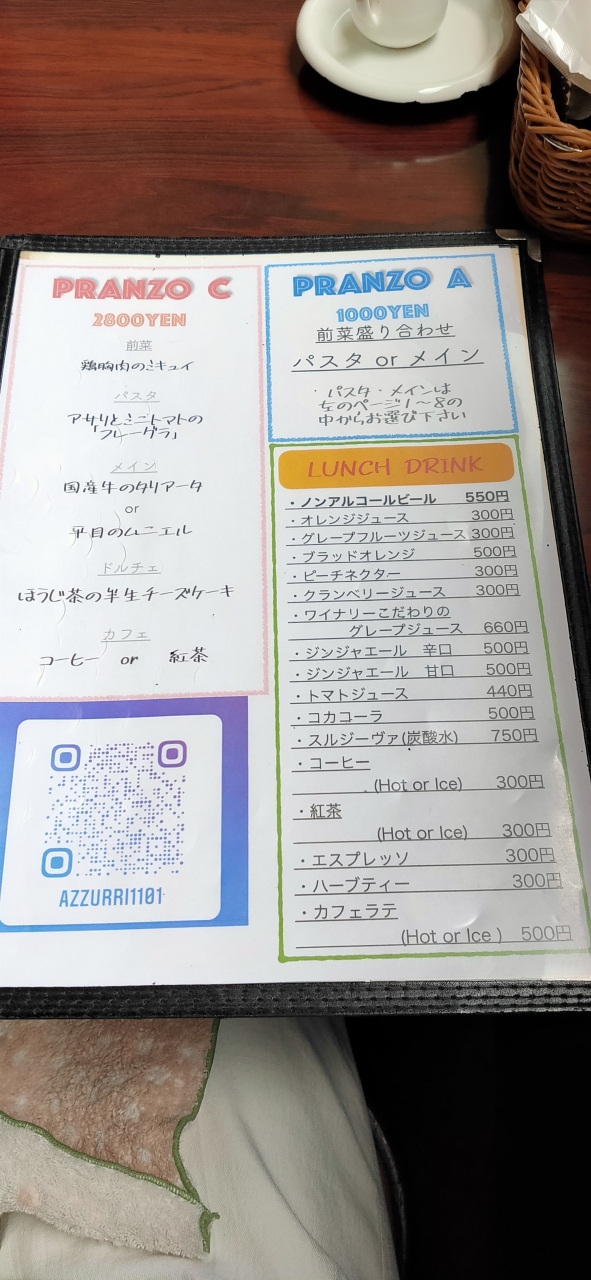 PRANZO C
2800YEN
前菜
鶏胸肉のミキュイ
パスタ
アサリとミニトマトの
「フレーグラ」
メイン
国産牛のタリアータ
or
平目のムニエル
ドルチェ
ほうじ茶の半生チーズケーキ
カフェ
コーヒー or 紅茶
AZZURRI1101
PRANZO A
1000YEN
前菜盛り合わせ
パスタ or メイン
パスタ・メインは
左のページ1~8の
中からお選び下さい
LUNCH DRINK
・ノンアルコールビール 550円
・オレンジジュース 300円
・グレープフルーツジュース 300円
・ブラッドオレンジ 500円
・ピーチネクター 300円
・クランベリージュース 300円
・ワイナリーこだわりの
グレープジュース 660円
・ジンジャエール 辛口 500円
・ジンジャエール 甘口 500円
・トマトジュース 440円
・コカコーラ 500円
・スルジーヴァ(炭酸水) 750円
・コーヒー
(Hot or Ice) 300円
・紅茶
(Hot or Ice) 300円
・エスプレッソ 300円
・ハーブティー 300円
・カフェラテ
(Hot or Ice ) 500円